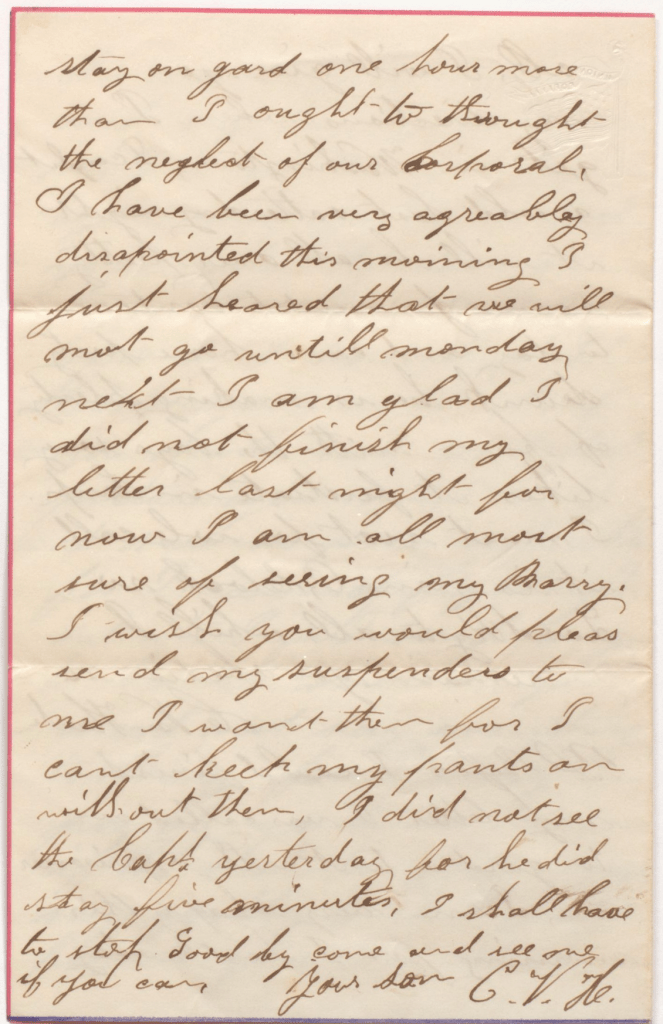 stay on gard one hour more
than I ought to throught
the neglect of our Corporal,
I have been very agreably
disapointed this morning I
just heared that we will
not go untill monday
next I am glad I
did not finish my
letter last night for
now I am all most
sure of seeing my Marry.
I wish you would pleas
send my suspenders to
me I want them for I
cant keep my pants on
without them, I did not see
the Capt. yesterday for he did
stay five minutes, I shall have
to stop Good by come and see me
if you can Your son C. V. H.